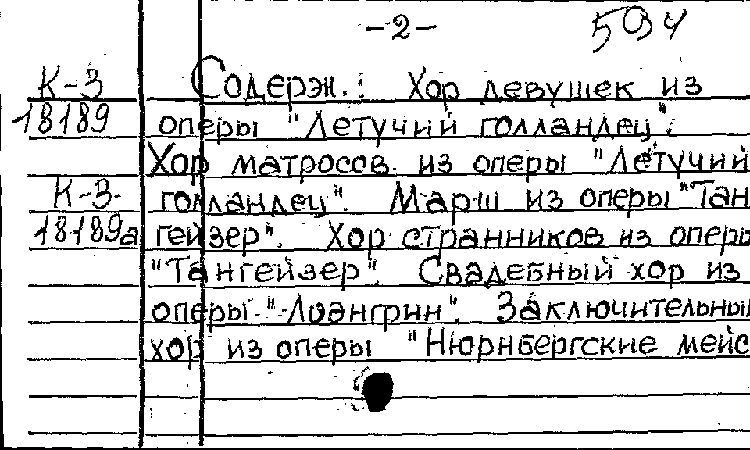 -2- 594
К-3 Содерж.: Хор девушек из
18189 оперы "Летучий голландец".
Хор матросов из оперы "Летучий
К-3 голландец". Марш из оперы "Тан
18189а гейзер". Хор странников из оперы
"Тангейзер". Свадебный хор из
оперы "Лоэнгрин". Заключительный
хор из оперы "Нюрнбергские мейс